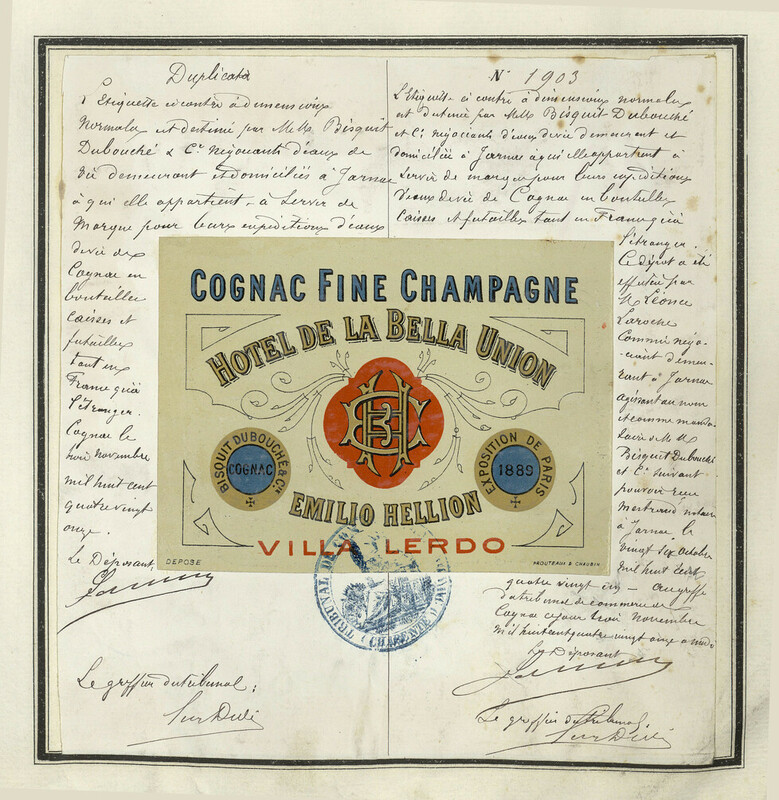 Duplicata
L'Etiquette ci contre à dimensions
Normales est destinée par Mess Bisquit
Dubouché & Cie Négociants d'eaux de
vie demeurant et domiciliés à Jarnac
à qui elle appartient à servir de
Marque pour leurs expéditions d'eaux
de vie de
Cognac en
bouteilles
caisses et
futailles
tant en
France qu'à
l'étranger.
Cognac le
trois novembre
mil huit cent
quatre vingt
onze.
Le Déposant
Le greffier du tribunal;
N° 1903
L'Etiquette ci contre à dimensions normales
est destinée par Mess Bisquit Dubouché
et Cie négociants d'eaux de vie demeurant et
domiciliés à Jarnac à qui elle appartient à
servir de marque pour leurs expéditions
d'eaux de vie de Cognac en bouteilles
caisses et futailles tant en France qu'à
l'étranger.
Ce dépôt a été
effectué par
M Léonce
Laroche
Commis négo-
ciant demeu-
rant à Jarnac
agissant au nom
et comme manda-
taire de M M
Bisquit Dubouché
et Cie suivant
pouvoir reçu
notaire
à Jarnac le
vingt six octobre
mil huit cent
quatre vingt onze — au greffe
du tribunal de commerce de
Cognac ce jour trois novembre
mil huit cent quatre vingt onze à midi
Le Déposant
Le greffier du tribunal
COGNAC FINE CHAMPAGNE
HOTEL DE LA BELLA UNION
BISQUIT DUBOUCHÉ & Cie
COGNAC
EXPOSITION DE PARIS
1889
EMILIO HELLION
VILLA LERDO
DEPOSE
MOUTEAUX & CHAUBIN
TRIBUNAL DE
(CHARENTE)